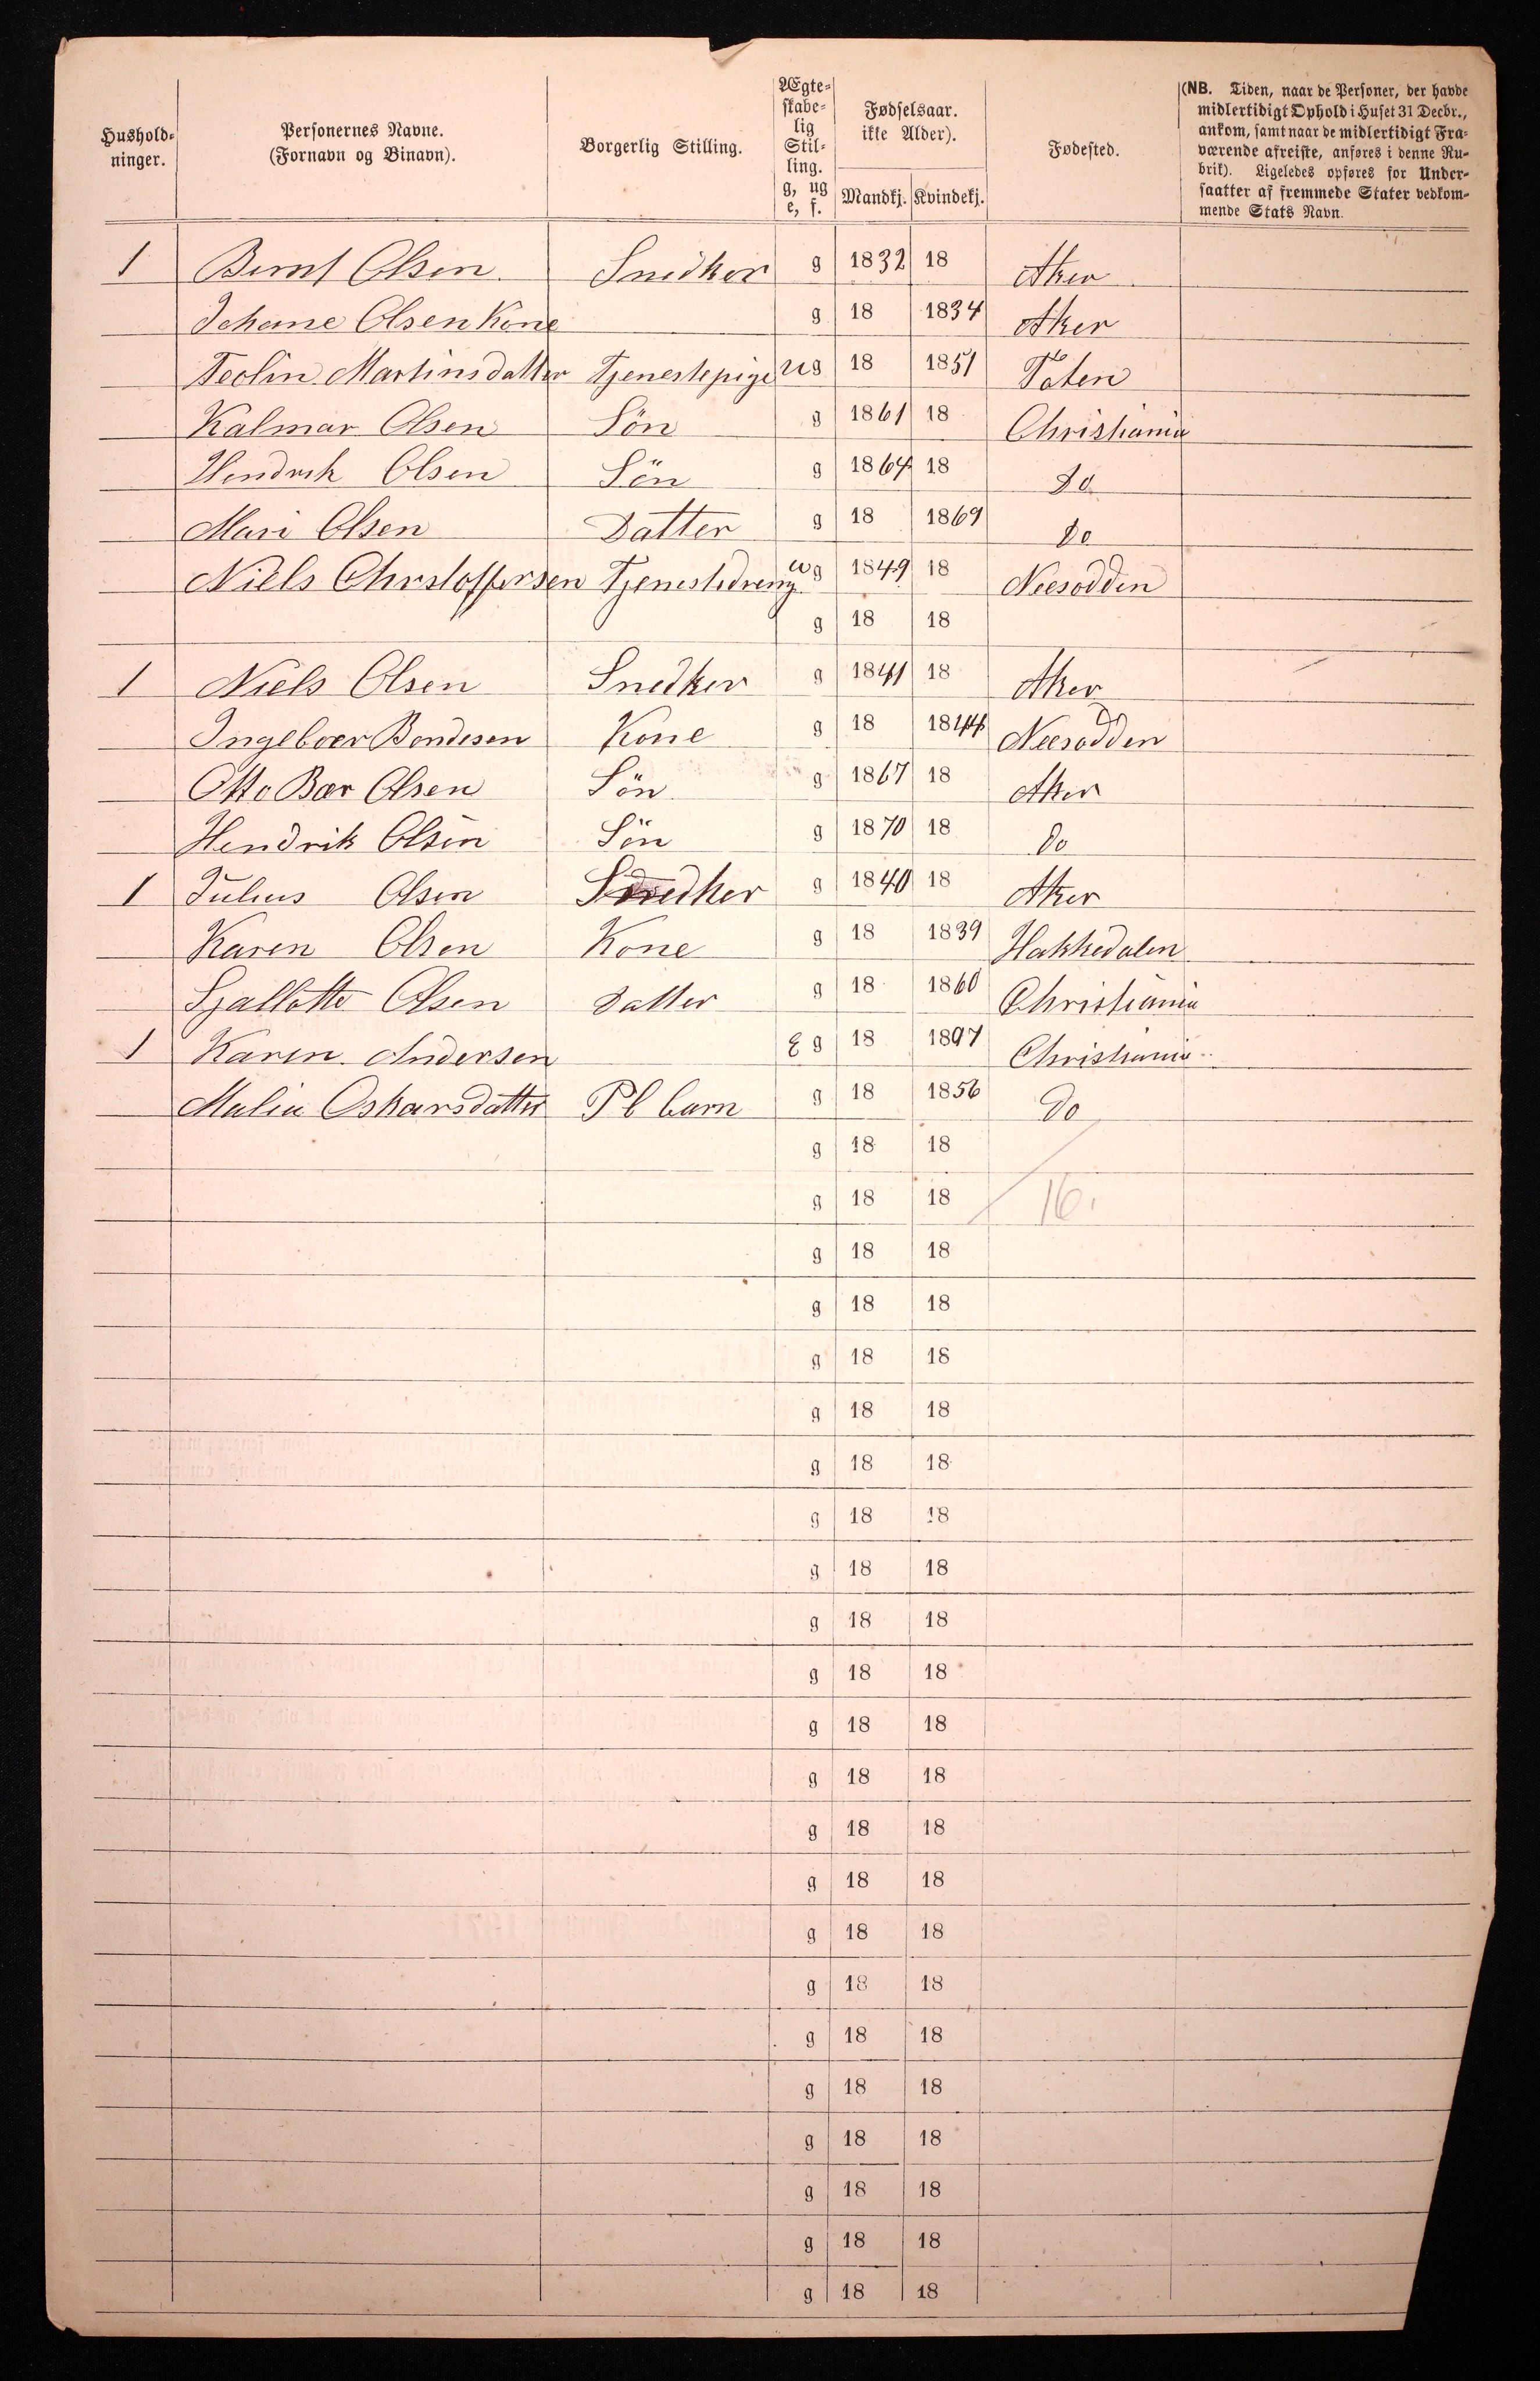 Hushold-
ninger.
Personernes Navne.
(Fornavn og Binavn).
Borgerlig Stilling.
Ægte-
skabe-
lig
Stil-
ling.
g, ug
e, f.
Fødselsaar.
ikke Alder).
Mandkj. Kvindekj.
Fødested.
(NB. Tiden, naar de Personer, der havde
midlertidigt Ophold i Huset 31 Decbr.,
ankom, samt naar de midlertidigt Fra-
værende afreiste, anføres i denne Ru-
brik). Ligeledes opføres for Under-
saatter af fremmede Stater vedkom-
mende Stats Navn.
1 Bernt Olsen Snedker g 1832 18 Aker
Johane Olsen Kone g 18 1834 Aker
Teolin Martinsdatter Tjenestepige ug 18 1851 Toten
Kalmar Olsen Sön g 1861 18 Christiania
Hendrik Olsen Sön g 1864 18 Do
Mari Olsen Datter g 18 1869 Do
Niels Chrstoffersen Tjenestedreng ug 1849 18 Neesodden
g 18 18
1 Niels Olsen Snedker g 1841 18 Aker
Ingeboer Bondesen Kone g 18 1844 Neesodden
Otto Bær Olsen Sön g 1867 18 Aker
Hendrik Olsen Sön g 1870 18 Do
1 Julius Olsen Snedker g 1840 18 Aker
Karen Olsen Kone g 18 1839 Hakkedalen
Sjallotte Olsen Datter g 18 1860 Christiania
1 Karen Andersen E g 18 1897 Christiania
Malia Oskarsdatter Pl barn g 18 1856 Do
g 18 18
g 18 18 16.
g 18 18
g 18 18
g 18 18
g 18 18
g 18 18
g 18 18
g 18 18
g 18 18
g 18 18
g 18 18
g 18 18
g 18 18
g 18 18
g 18 18
g 18 18
g 18 18
g 18 18
g 18 18
g 18 18
g 18 18
g 18 18